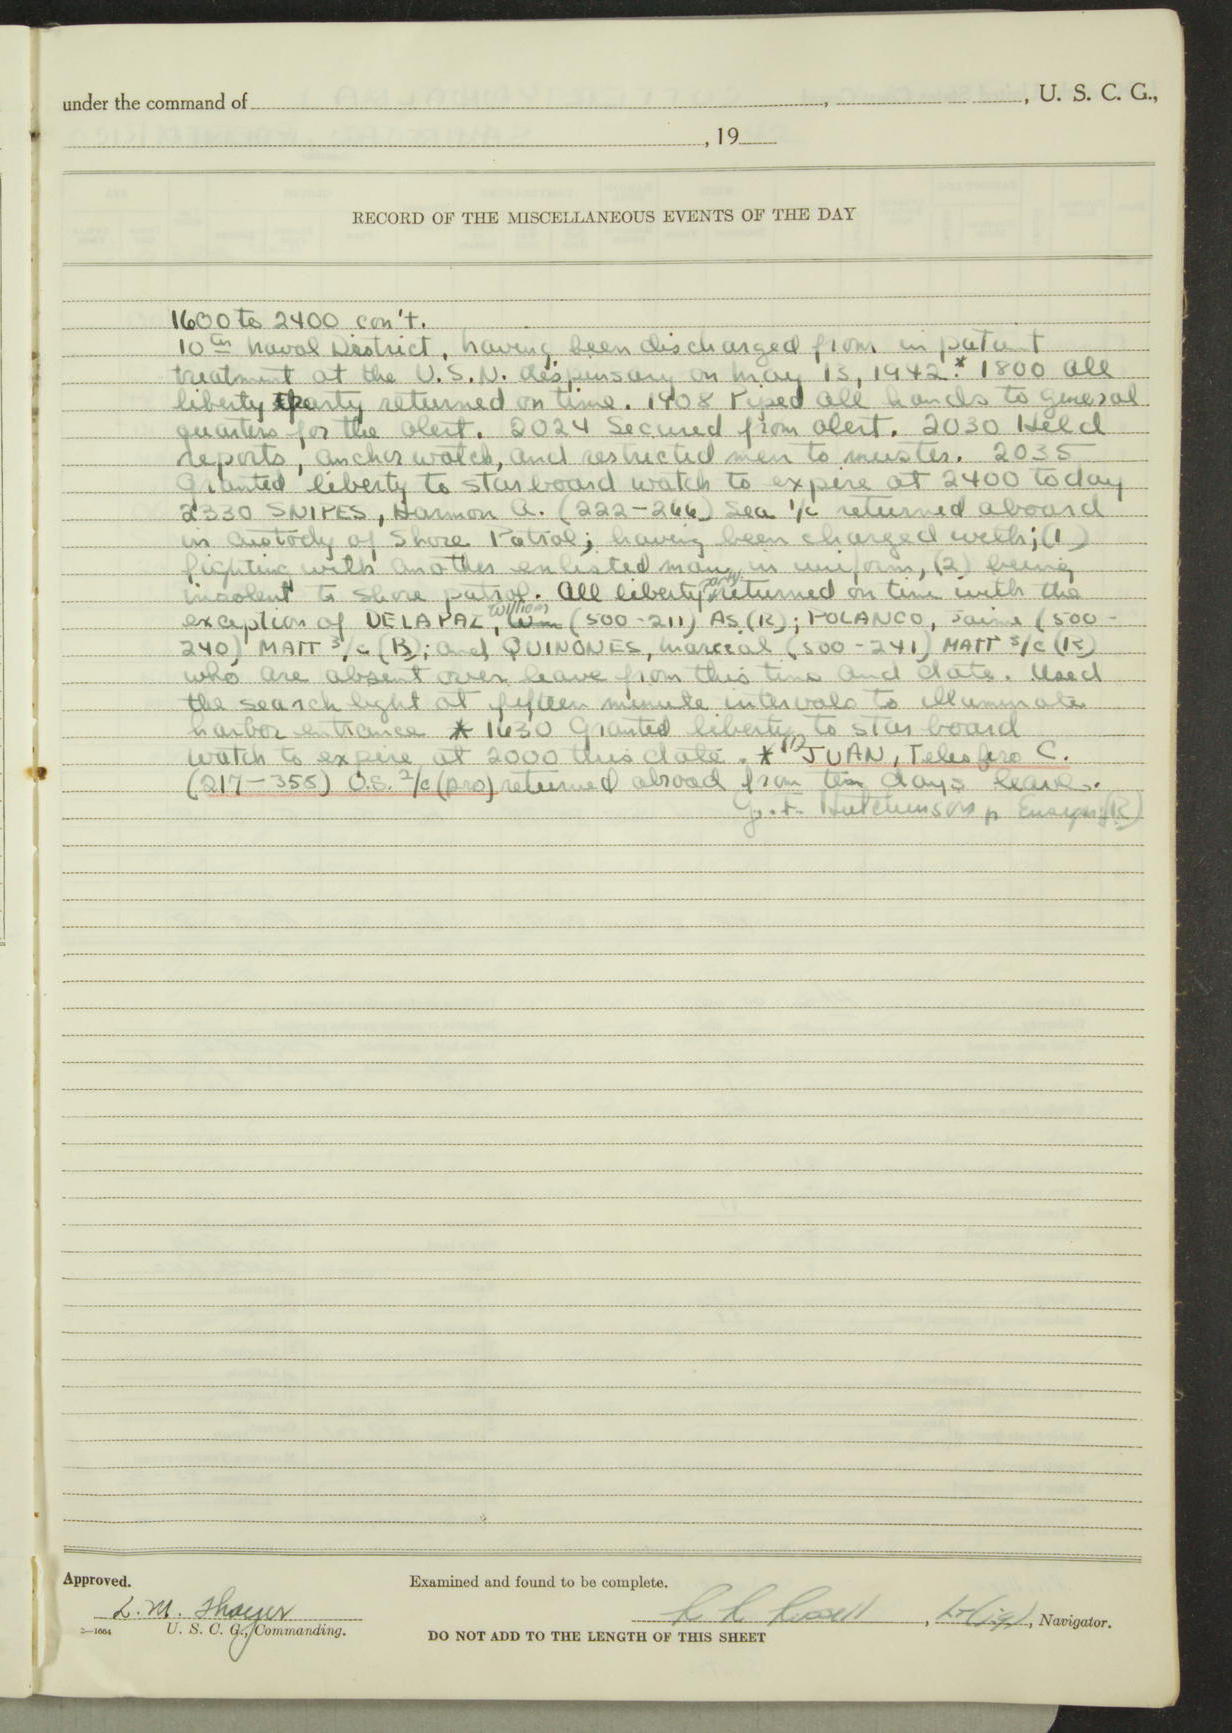 under the command of , , U. S. C. G.,
, 19
RECORD OF THE MISCELLANEOUS EVENTS OF THE DAY
1600 to 2400 con't.
10th Naval District, having been discharged from in patient
treatment at the U.S.N. dispensary on May 13, 1942.* 1800 All
liberty party returned on time. 1908 Piped all hands to general
quarters for the alert. 2024 Secured from alert. 2030 Held
reports, anchor watch, and restricted men to muster. 2035
Granted liberty to starboard watch to expire at 2400 today
2330 SNIPES, Harmon A. (222-266) Sea 1/c returned aboard
in custody of Shore Patrol; having been charged with; (1)
fighting with another enlisted man in uniform, (2) being
insolent to shore patrol. All liberty party returned on time with the
exception of DELAPAZ, William (500-211) AS (R); POLANCO, Jaime (500-
240) MATT 3/c (R); and QUINONES, Marcial (500-241) MATT 3/c (R)
who are absent over leave from this time and date. Used
the search light at fifteen minute intervals to illuminate
harbor entrance * 1630 Granted liberty to starboard
watch to expire at 2000 this date. * (1) JUAN, Telesforo C.
(217-355) O.S. 2/c (pro) returned abroad from ten days leave.
G. F. Hutchinson, Ensign (R)
Approved.
Examined and found to be complete.
L. M. Thayer
R R Russell , Lt(jg), Navigator.
2-1664 U. S. C. G., Commanding.
DO NOT ADD TO THE LENGTH OF THIS SHEET